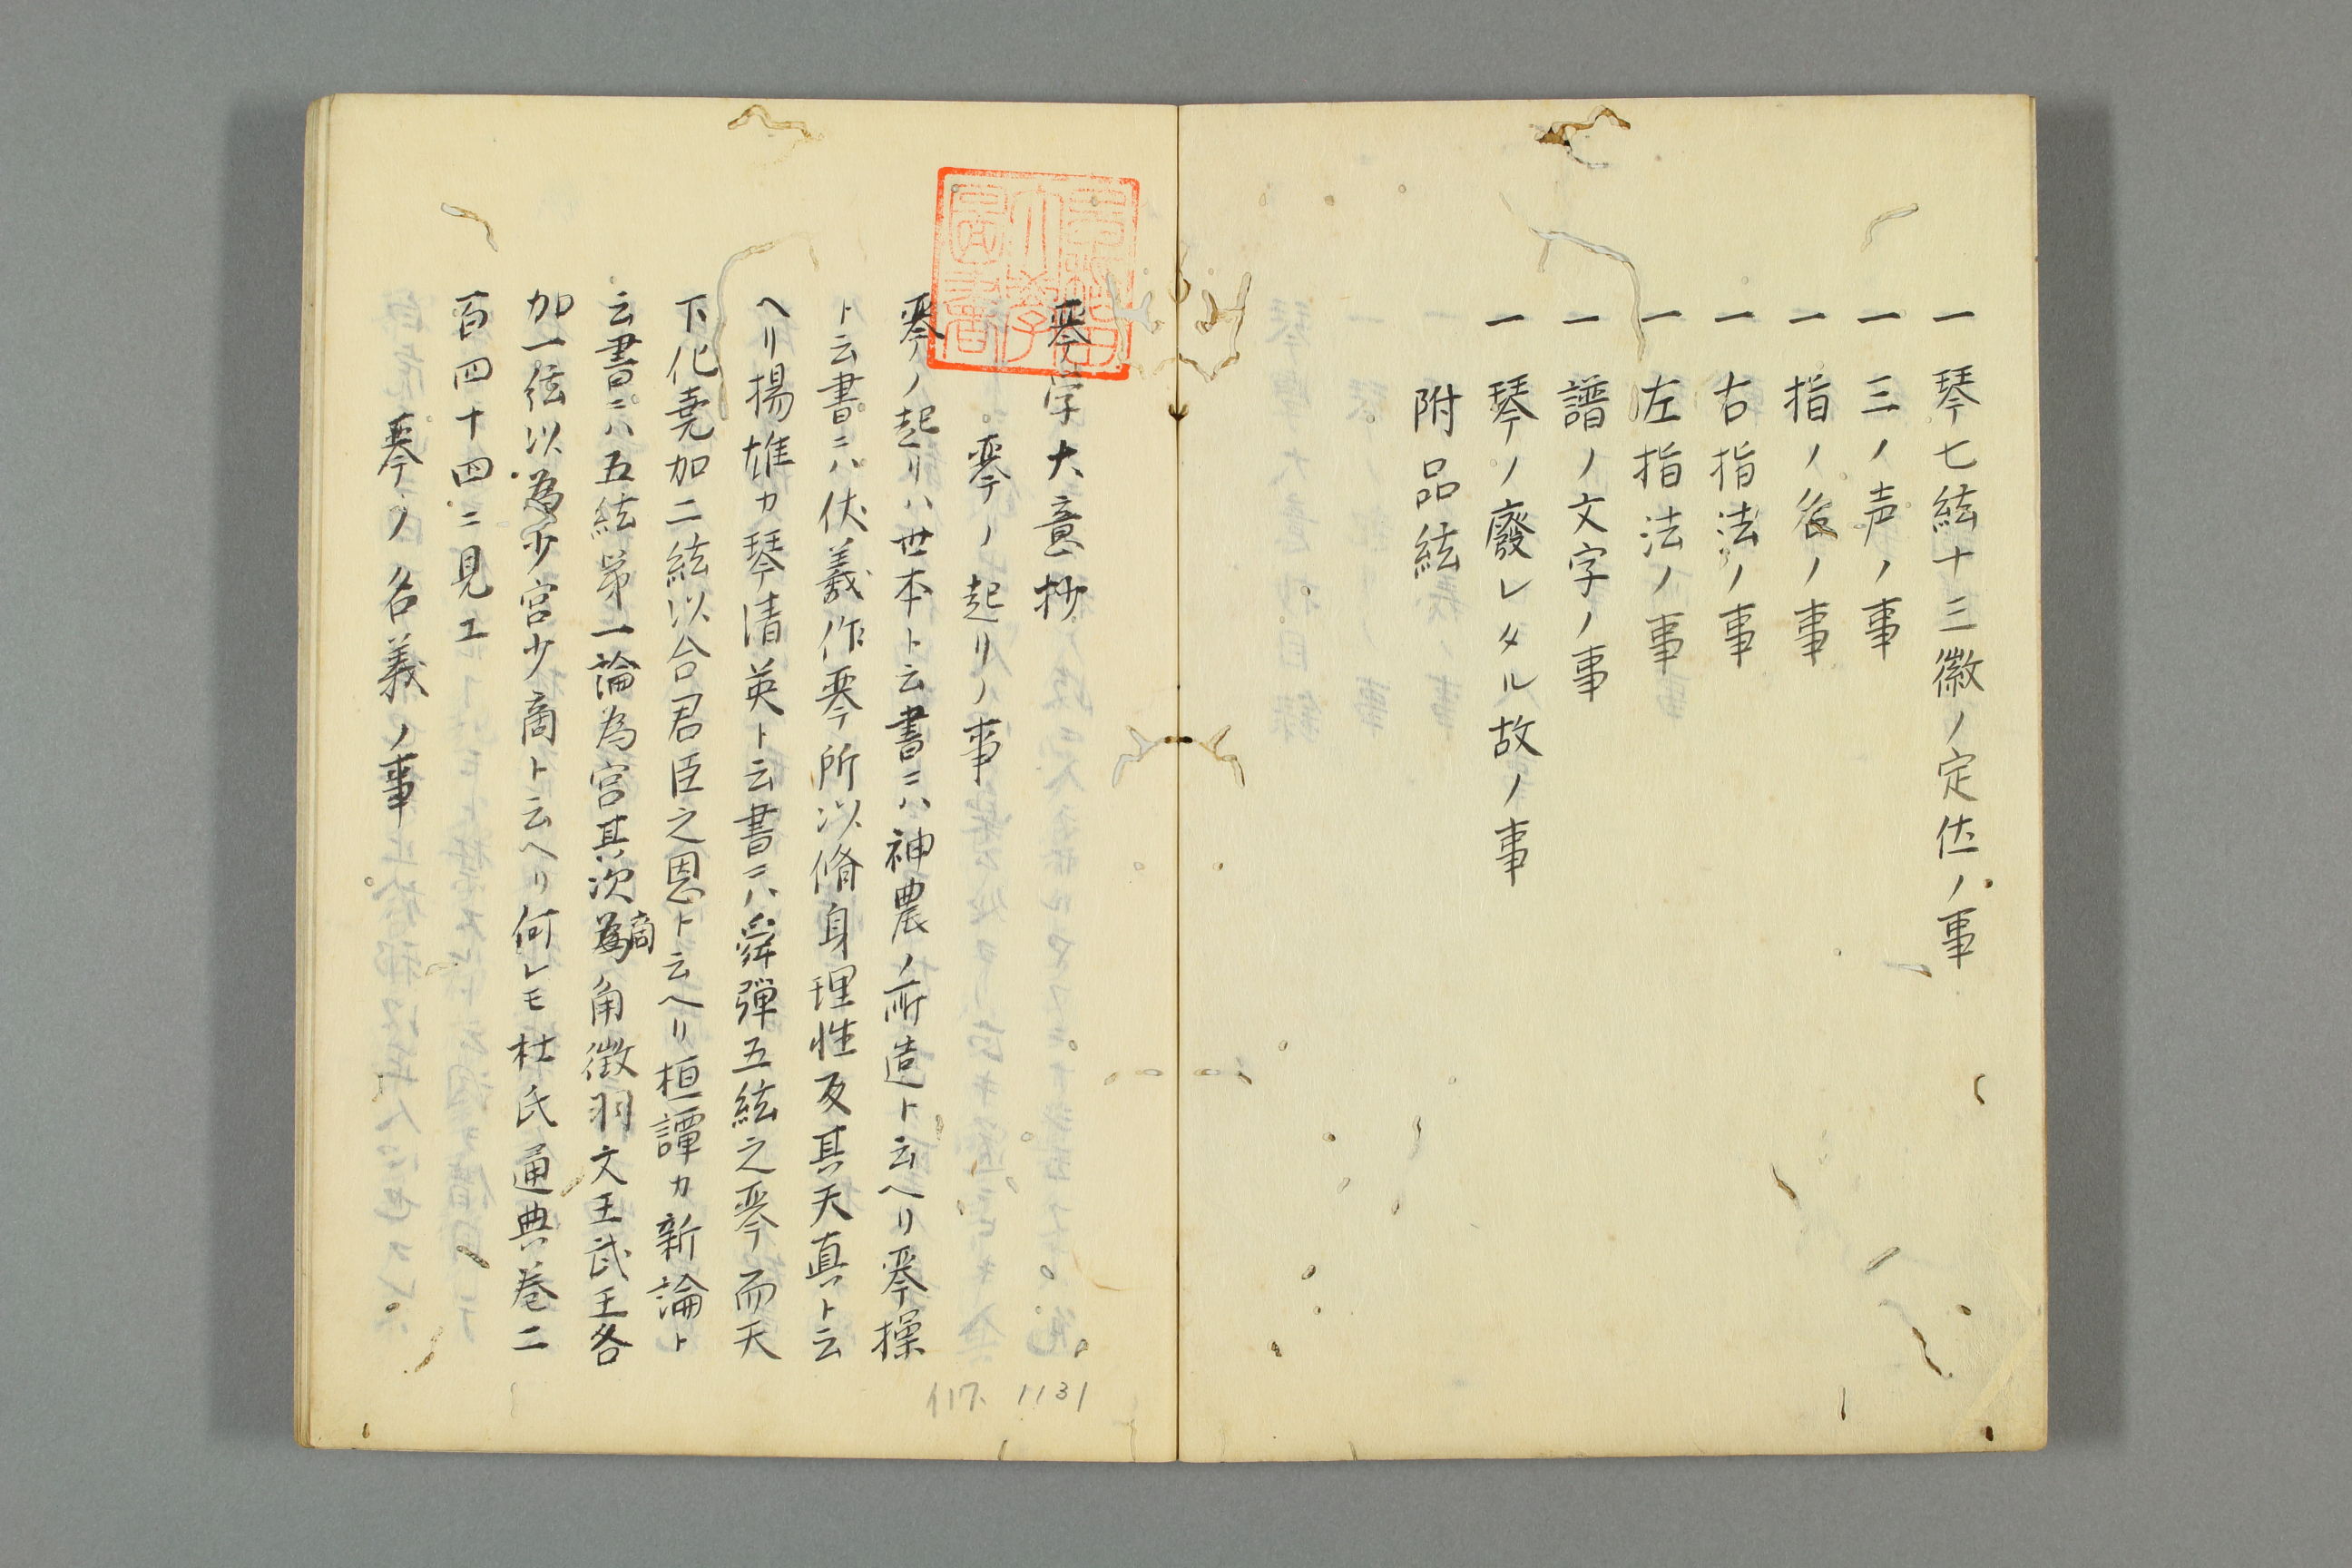 一琴七絃十三徽ノ定位ノ事
一三ノ声ノ事
一指ノ名ノ事
一右指法ノ事
一左指法ノ事
一譜ノ文字ノ事
一琴ノ廢レタル故ノ事
附品絃
琴学大意抄
琴ノ起リノ事
琴ノ起リハ世本ト云書ニハ神農ノ所造ト云ヘリ琴操
ト云書ニハ伏羲作琴所以脩身理性反其天真ト云
ヘリ揚雄カ琴清英ト云書ニハ舜彈五絃之琴而天
下化堯加二絃以合君臣之恩ト云ヘリ桓譚カ新論ト
云書ニハ五絃第一論為宮其次為商角徴羽文王武王各
加一弦以為少宮少商ト云ヘリ何レモ杜氏通典巻二
百四十四ニ見エ
琴ノ名義ノ事
117. 1131